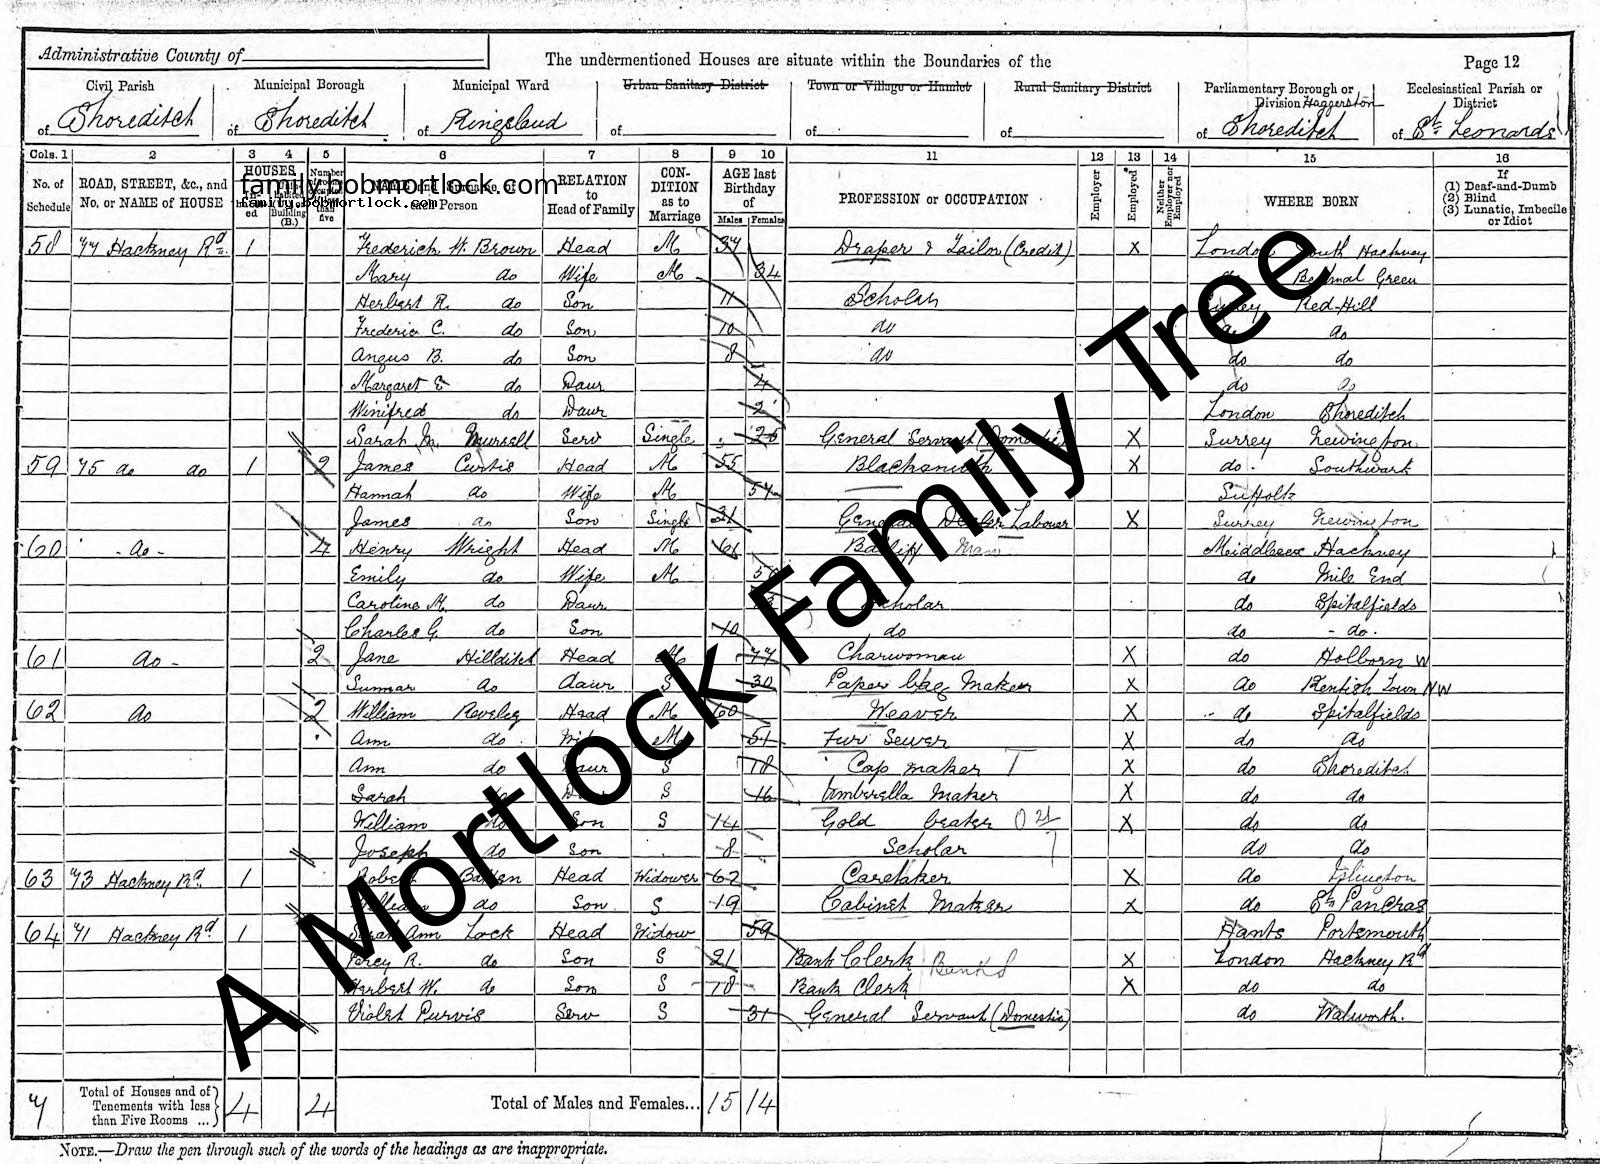 Administrative County of
The undermentioned Houses are situate within the Boundaries of the
Page 12
Civil Parish
of Shoreditch
Municipal Borough
of Shoreditch
Municipal Ward
of Kingsland
Urban Sanitary District
of
Town or Village or Hamlet
of
Rural Sanitary District
of
Parliamentary Borough or
Division Haggerston
of Shoreditch
Ecclesiastical Parish or
District
of St Leonards
Cols. 1 2 3 4 5 6 7 8 9 10 11 12 13 14 15 16
No. of
Schedule
ROAD, STREET, &c., and
No. or NAME of HOUSE
HOUSES
family.bobmortlock.com
family.bobmortlock.com
RELATION
to
Head of Family
CON-
DITION
as to
Marriage
AGE last
Birthday
of
Males Females
PROFESSION or OCCUPATION
Employer
Employed
Neither
Employer nor
Employed
WHERE BORN
If
(1) Deaf-and-Dumb
(2) Blind
(3) Lunatic, Imbecile
or Idiot
58 77 Hackney Rd 1 Frederick W. Brown Head M 37 Draper & Tailor (Credit) X London South Hackney
Mary do Wife M 34 do Bethnal Green
Herbert R. do Son 11 Scholar Surrey Red-Hill
Frederic C. do Son 10 do do do
Angus B. do Son 8 do do do
Margaret E do Daur 4 do do
Winifred do Daur 2 London Shoreditch
Sarah M. Murrell Serv Single 25 General Servant (Domestic) X Surrey Newington
59 75 do do 1 2 James Curtis Head M 55 Blacksmith X do. Southwark
Hannah do Wife M 57 Suffolk
James do Son Single 31 General Labourer X Surrey Newington
60 - do - 4 Henry Wright Head M 61 Bailiff Man Middlesex Hackney
Emily do Wife M do Mile End
Caroline M. do Daur Scholar do Spitalfields
Charles G. do Son 10 do do - do.
61 do - 2 Jane Hillditch Head M 77 Charwoman X do Holborn W
do daur S 30 Paper bag Maker X do Kentish Town NW
62 do 2 William Head M 60 Weaver X do Spitalfields
Ann do Wife M 51 Fur Sewer X do do
Ann do Daur S 18 Cap maker T X do Shoreditch
Sarah do Daur S 16 Umberella Maker X do do
William do Son S 14 Gold beater X do do
Joseph do Son 8 Scholar do do
63 73 Hackney Rd. 1 Robert Head Widower 62 Caretaker X do Islington
William do Son S 19 Cabinet Maker X do St Pancras
64 71 Hackney Rd 1 Sarah Ann Lock Head Widow 59 Hants Portsmouth
Percy R. do Son S 21 Bank Clerk X London Hackney Rd
Herbert W. do Son S 18 Bank Clerk X do do
Violet Purvis Serv S 31 General Servant (Domestic) do Walworth.
7 Total of Houses and of
Tenements with less
than Five Rooms ... 4 4 Total of Males and Females... 15 14
NOTE.—Draw the pen through such of the words of the headings as are inappropriate.
A Mortlock Family Tree